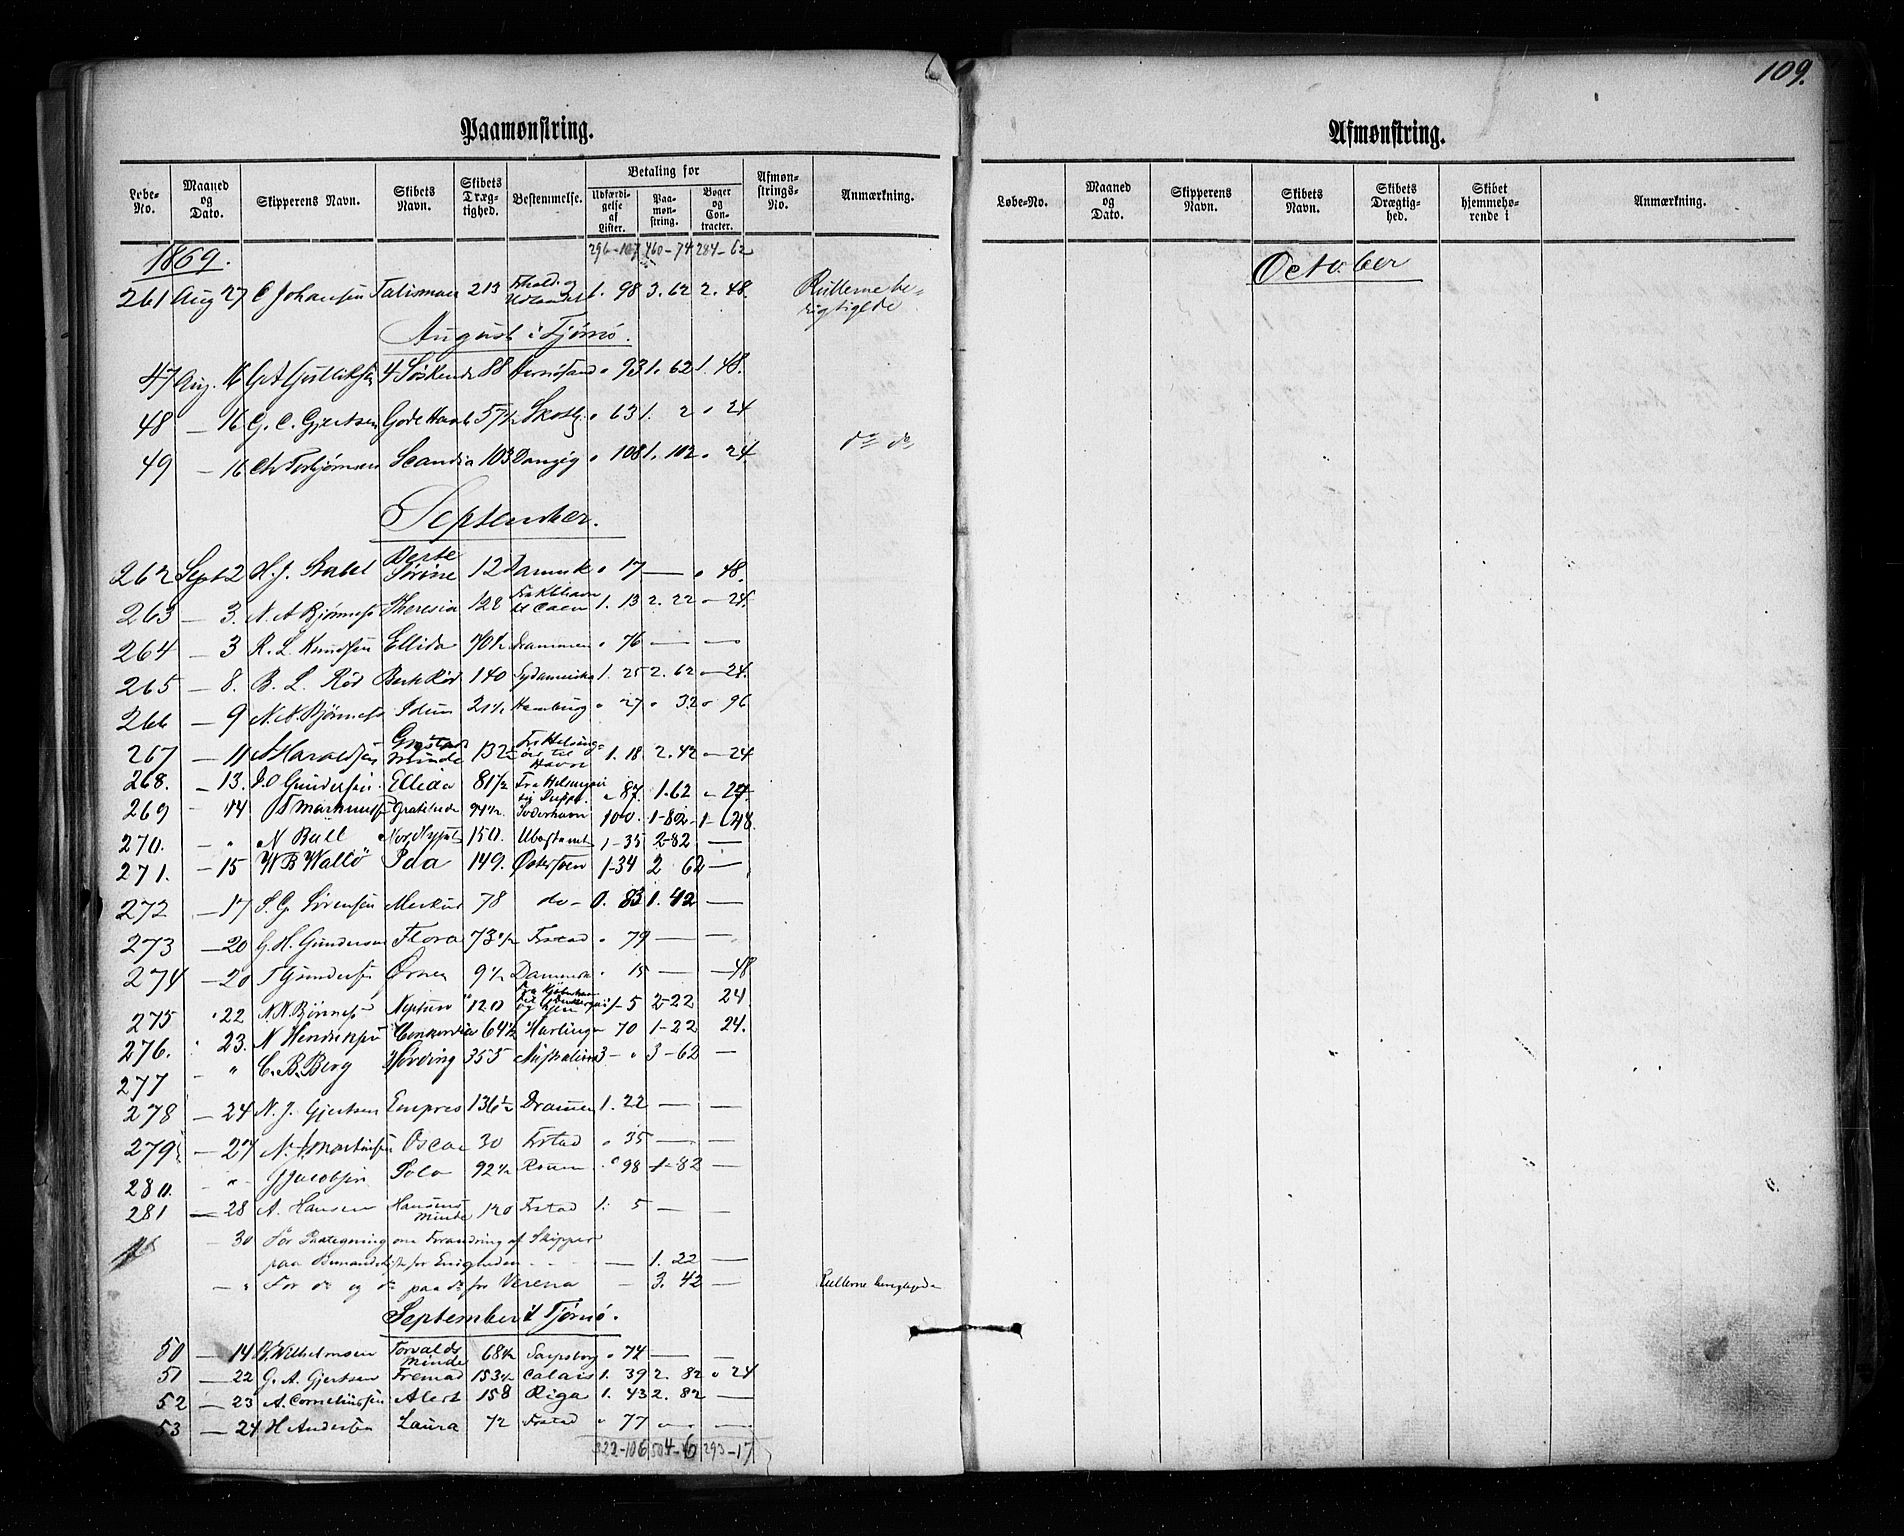 109.
Paamønstring.
Løbe-No. Maaned og Dato. Skipperens Navn. Skibets Navn. Skibets Drægtighed. Bestemmelse. Betaling for Udfærdigelse af Lister. Paamønstring. Bøger og Contracter. Afmønstrings-No. Anmærkning.
296-107 460-74 284-62
1869.
261 Aug 27 C Johansen Talisman 213 Fhald og Udlandet 1. 98 3. 62 2. 48. Rullerne berigtigede
August i Tjømø.
47 Aug. 16 G A Gulliksen 4 Søskende 88 Hernøsand " 93 1. 62 1. 48.
48 — 16 G. C. Gjertsen Gode Haab 57½ " 63 1. 2 " 24
49 — 16 Chr Torbjørnsen Scandia 103 Danzig " 108 1. 102 " 24 do do
September.
262 Sept 2 H. J. Berte Sørine 12 Danmark " 17 — " 48.
263 — 3. N. A Bjønness Theresia 128 Fra Kbhavn til Caen 1. 13 2. 22 — 24.
264 — 3 R. L. Knudsen Ellida 70½ Drammen " 76 — —
265 — 8. B. L. Rød Bark Rød 140 Sydamerika 1. 25 2. 62 — 24.
266 — 9 N. N. Bjønness Idun 21½ Hamburg " 27 " 32 " 96
267 — 11 A Haraldsen Minde 132½ Fra Helsingør til Havre 1. 18 2. 42 — 24
268. — 13. J. O Gundersen Ellida 81½ Fra Helsingør " 87. 1-62 " 24.
269 — 14 Martinusen Gratitude 94½ Søderhavn 100. 1-82 1-48.
270. — " N Ball Nordlyset 150. Ubestemt 1-35 2-82 —
271. — 15 W B Wallø Ida 149. Østersøen 1-34 2 62 —
272 — 17 S. G. Sørensen Merkur 78 do — 0. 83 1. 42 —
273 — 20 G. H. Gundersen Flora 73½ Frstad " 79 — —
274 — 20 T Gundersen Ørnen 9½ Danmark " 15 — — 48
275 " 22 N. N. Bjønness Neptun 120 Fra Kjøbenhavn 1-5 2-22 24
276. " 23. N Henriksen Concordia 64½ Harlingen 70 1-22 24.
277 — " C. B. Berg Høvding 355 Australien 3- " 3-62 —
278 — 24 N. J. Gjertsen Empres 136½ Drammen 1. 22 — —
279 — 27 N. J. Martinsen Oscar 30 Frstad " 35 — —
280. — " J Jacobsen Polo 92½ Rouen " 98 1-82 —
281 — 28 A. Hansen Hansens Minde 120 Frstad 1. 5 — —
— 30 For Paategning om Forandring af Skipper
paa for Enigheden — 1. 22 —
— " For do og do paa do for Verena — 3. 42 — Rullerne berigtigede
September i Tjømø.
50 — 14 Wilhelmsen Torvalds Minde 68½ Sarpsborg " 74 — —
51 — 22 G. A. Gjertsen Fremad 153½ Calais 1. 39 2. 82 " 24
52 — 23 A. Corneliussen Alert 158 Riga 1. 43 2. 82 —
53 — 24 H Andersen Laura 72 Frstad " 77 " — —
322-106 504-6 293-17
Afmønstring.
Løbe-No. Maaned og Dato. Skipperens Navn. Skibets Navn. Skibets Drægtighed. Skibet hjemmehørende i Anmærkning.
October